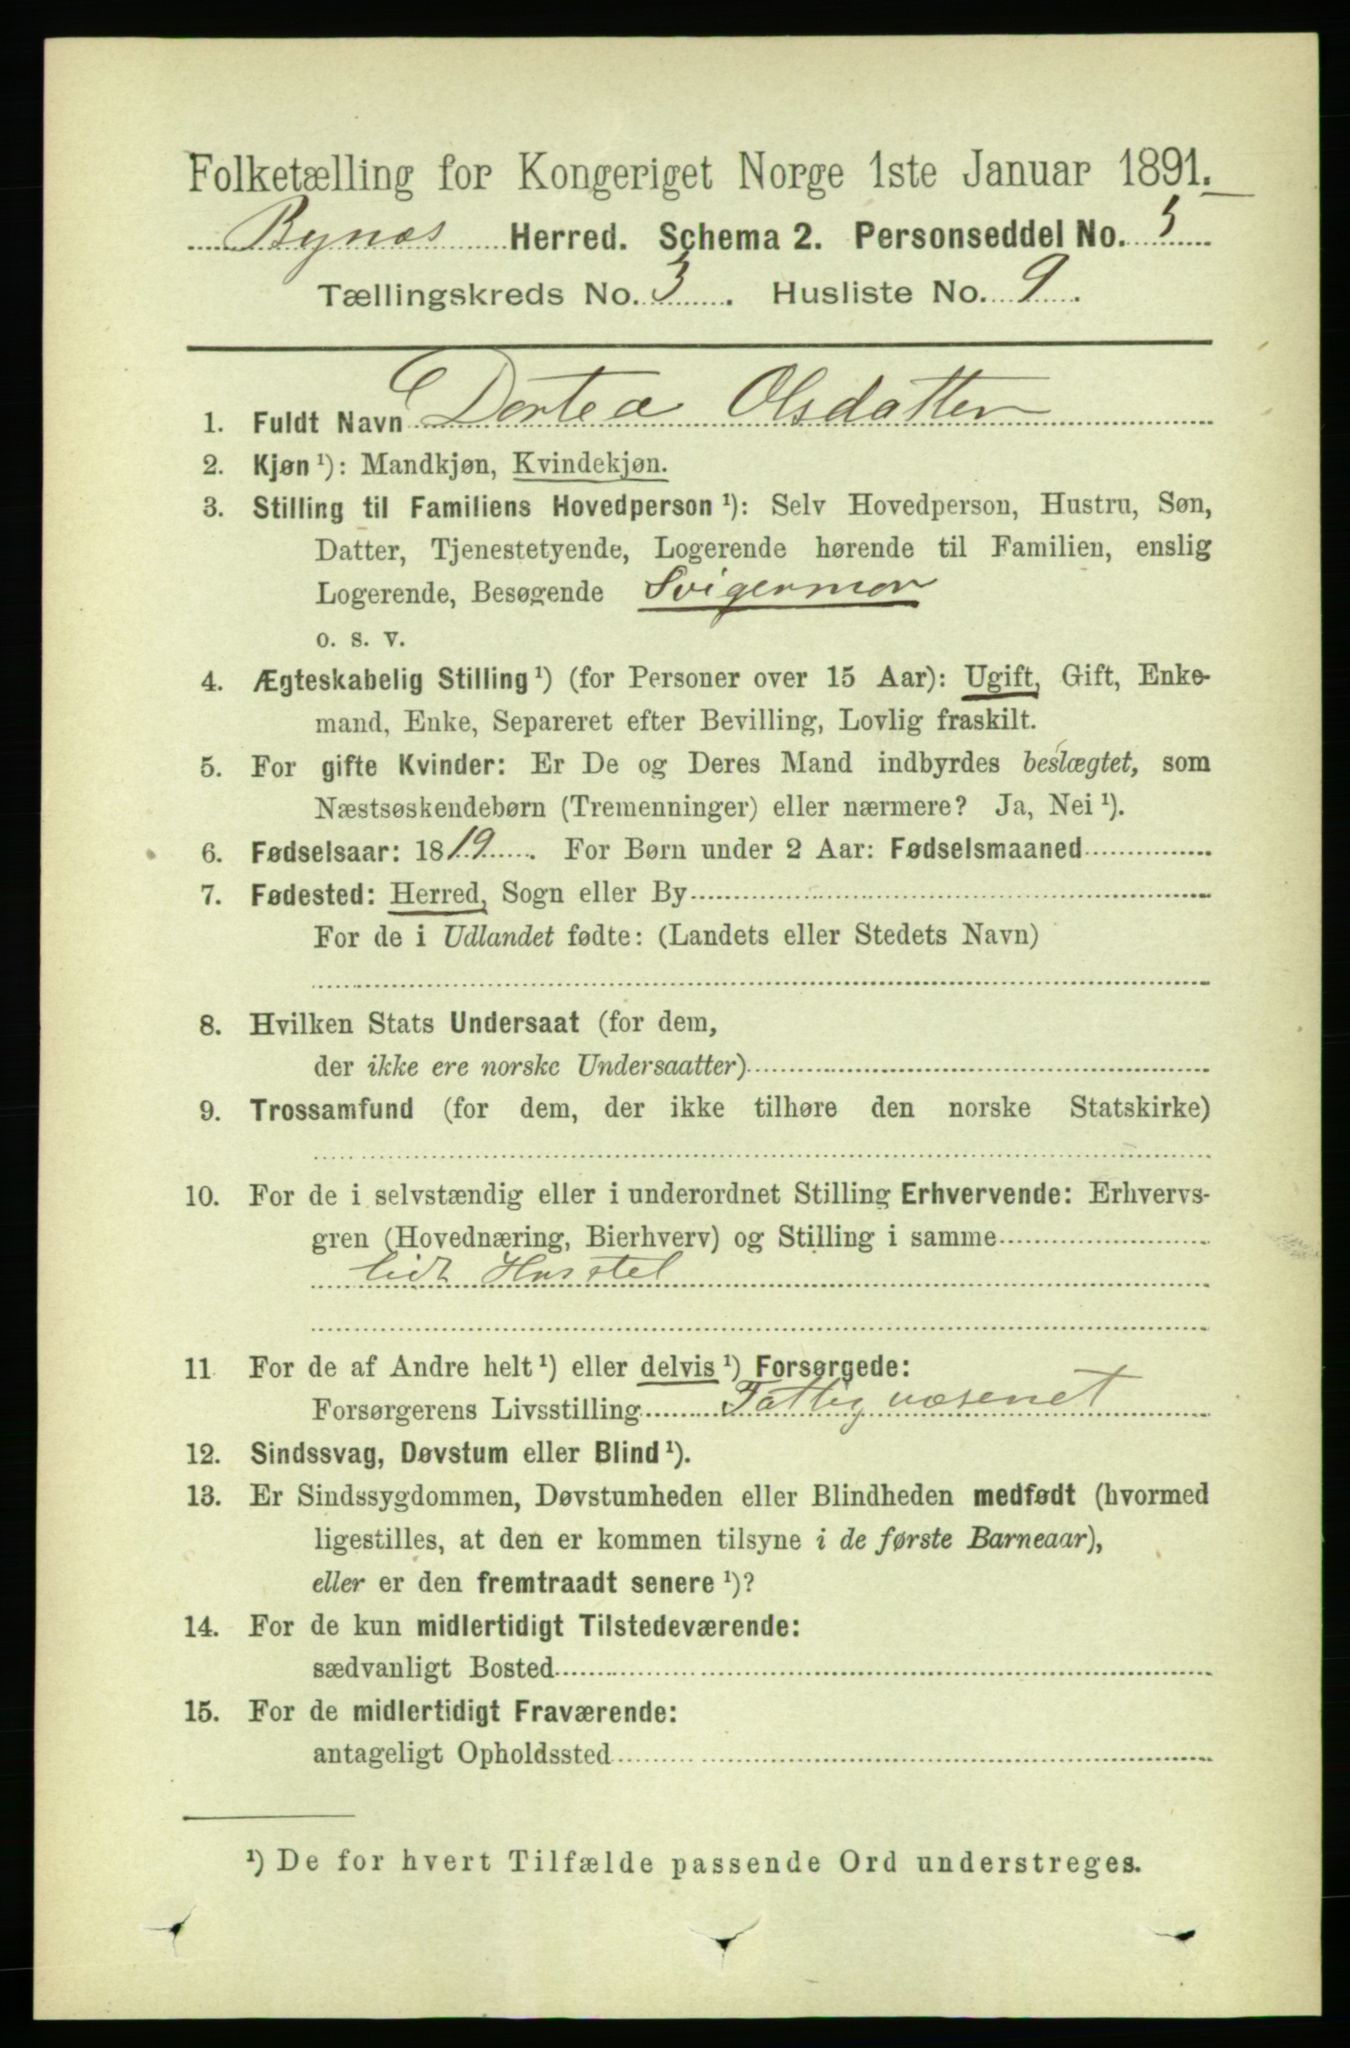 Folketælling for Kongeriget Norge 1ste Januar 1891.
Bynæs Herred. Schema 2. Personseddel No. 5
Tællingskreds No. 3. Husliste No. 9.
1. Fuldt Navn Dortea Olsdatter
2. Kjøn ¹): Mandkjøn, Kvindekjøn.
3. Stilling til Familiens Hovedperson ¹): Selv Hovedperson, Hustru, Søn,
Datter, Tjenestetyende, Logerende hørende til Familien, enslig
Logerende, Besøgende Svigermor
o. s. v.
4. Ægteskabelig Stilling ¹) (for Personer over 15 Aar): Ugift, Gift, Enke-
mand, Enke, Separeret efter Bevilling, Lovlig fraskilt.
5. For gifte Kvinder: Er De og Deres Mand indbyrdes beslægtet, som
Næstsøskendebørn (Tremenninger) eller nærmere? Ja, Nei ¹).
6. Fødselsaar: 1819. For Børn under 2 Aar: Fødselsmaaned
7. Fødested: Herred, Sogn eller By
For de i Udlandet fødte: (Landets eller Stedets Navn)
8. Hvilken Stats Undersaat (for dem,
der ikke ere norske Undersaatter)
9. Trossamfund (for dem, der ikke tilhøre den norske Statskirke)
10. For de i selvstændig eller i underordnet Stilling Erhvervende: Erhvervs-
gren (Hovednæring, Bierhverv) og Stilling i samme
lidt Husstel
11 For de af Andre helt ¹) eller delvis ¹) Forsørgede:
Forsørgerens Livsstilling Fattigvæsenet
12. Sindssvag, Døvstum eller Blind ¹).
13. Er Sindssygdommen, Døvstumheden eller Blindheden medfødt (hvormed
ligestilles, at den er kommen tilsyne i de første Barneaar),
eller er den fremtraadt senere ¹)?
14. For de kun midlertidigt Tilstedeværende:
sædvanligt Bosted
15. For de midlertidigt Fraværende:
antageligt Opholdssted
¹) De for hvert Tilfælde passende Ord understreges.